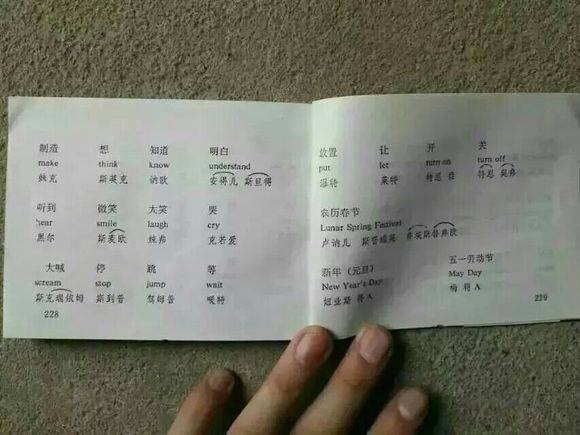 制造 想 知道 明白
make think know understand
妹克 斯英克 讷欧 安得儿 斯旦得
听到 微笑 大笑 哭
hear smile laugh cry
黑尔 斯麦欧 克若爱
大喊 停 跳 等
scream stop jump wait
斯克瑞依姆 斯到普 驾姆普 喂特
228
放置 让 开 关
put let turn on turn off
莱特 特恩 特恩
农历春节
Lunar Spring Festival
卢讷儿
新年（元旦） 五一劳动节
New Year's Day May Day
纽业斯 得A 梅 得A
229